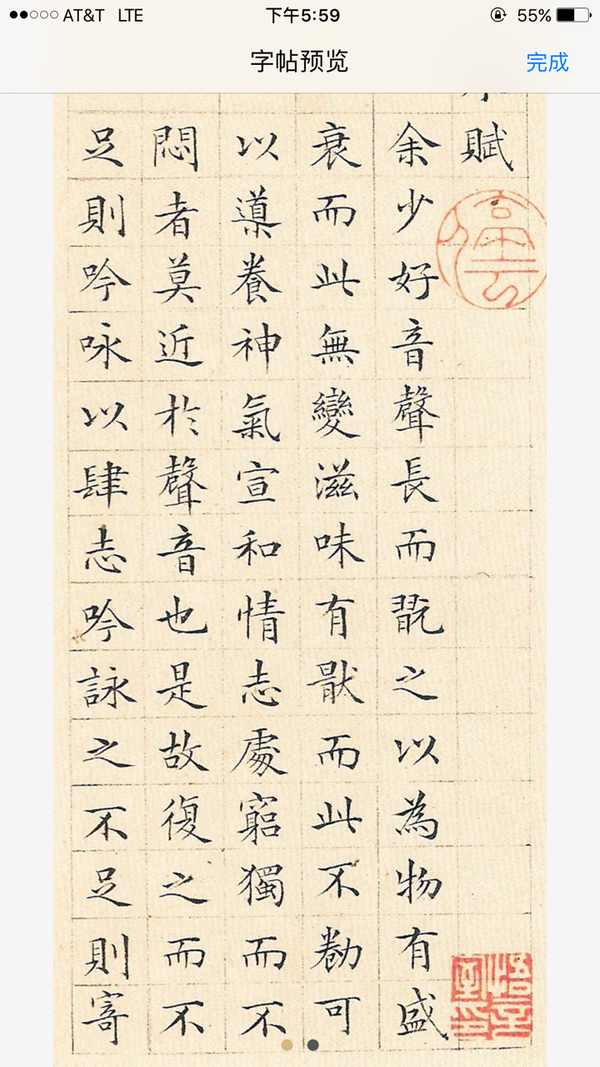 ●●○○○ AT&T LTE 下午5:59 55%
字帖预览 完成
賦
余少好音聲長而翫之以為物有盛
衰而此無變滋味有猒而此不勌可
以導養神氣宣和情志處窮獨而不
悶者莫近於聲音也是故復之而不
足則吟咏以肆志吟詠之不足則寄